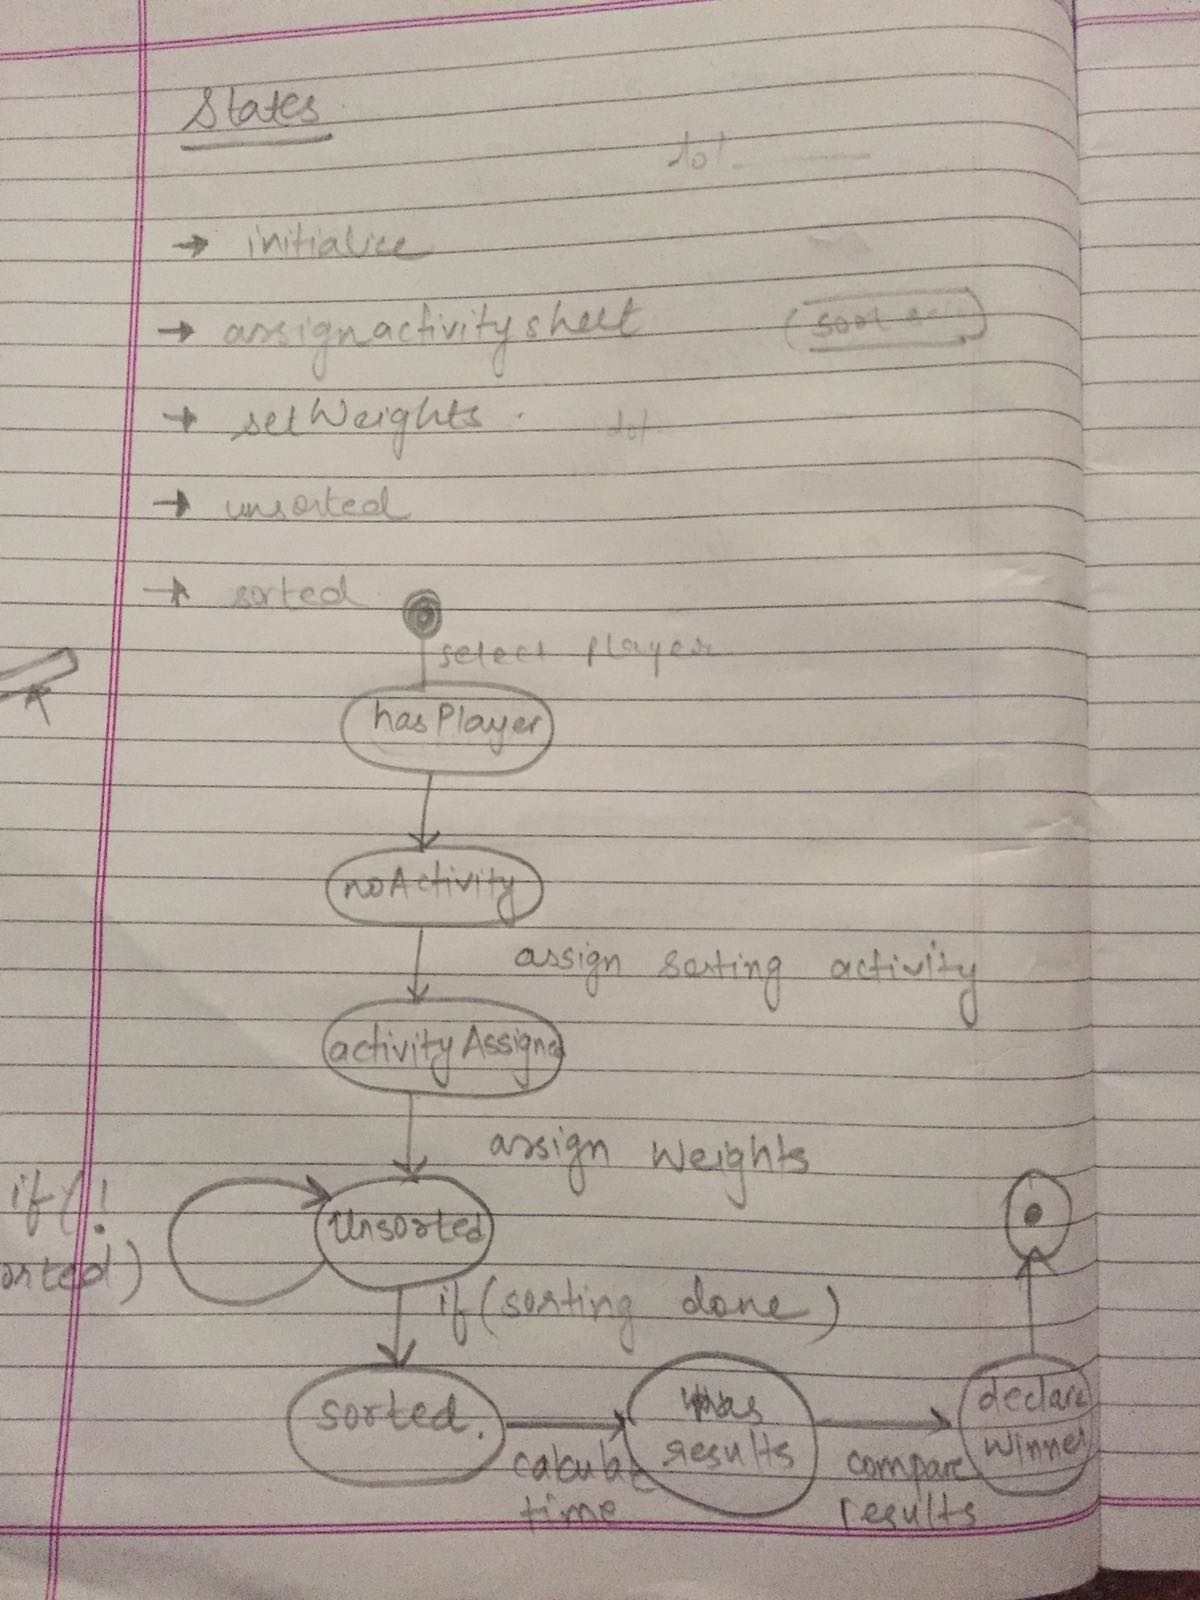 States
→ initialice
→ assignactivity sheet
→ setWeights .
→ unsorted
→ sorted
select Player
hasPlayer
noActivity
assign sorting activity
activity Assigned
assign Weights
if (!
orted)
Unsorted
if (sorting done)
sorted.
calculate
time
has
results
compare
results
declare
winner